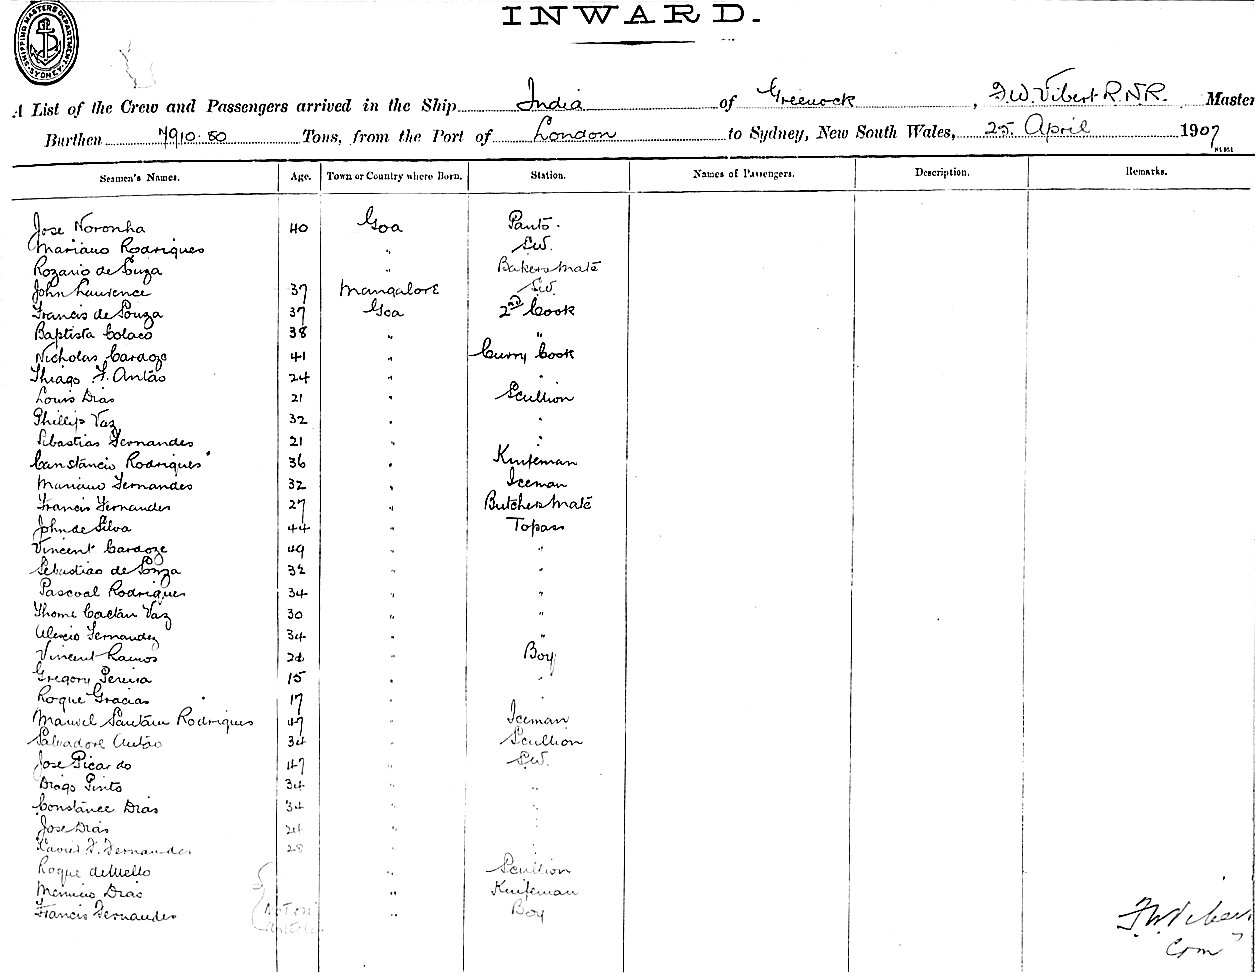 SHIPPING MASTERS DEPARTMENT SYDNEY
INWARD.
A List of the Crew and Passengers arrived in the Ship India of Greenock, F.W. Vibert R.N.R. Master
Burthen 7910.50 Tons, from the Port of London to Sydney, New South Wales, 25 April 1907
Seamen's Names. Age. Town or Country where Born. Station. Names of Passengers. Description. Remarks.
Jose Noronha 40 Goa
Mariano Rodrigues " S.W.
Rozario de Souza " Bakers Mate
John Lawrence 37 Mangalore S.W.
Francis de Souza 37 Goa 2nd Cook
Baptista Colaco 38 " "
Nicholas Cardozo 41 " Curry Cook
Thiago F. Antao 24 " "
Louis Dias 21 " Scullion
Phillip Vaz 32 " "
Sebastias Fernandes 21 " "
Constancio Rodrigues 36 " Knifeman
Mariano Fernandes 32 " Iceman
Francis Fernandes 27 " Butchers Mate
John de Silva 44 " Topass
Vincent Cardoze 49 " "
Sebastiao de Souza 32 " "
Pascoal Rodrigues 34 " "
Thome Caetan Vaz 30 " "
Alexio Fernandez 34 " "
Vincent Ramos " Boy
Gregory Pereira 15 " "
Roque Gracias 17 "
Manuel Santan Rodrigues 47 " Iceman
Salvadore Antao 34 " Scullion
Jose Picardo 47 " S.W.
Diago Pinto 34 " "
Constance Dias 34 " "
Jose Dias 24 " "
Xavier F. Fernandes 28 " "
Roque deMello " Scullion
Dias " Knifeman
Francis Fernandes " Boy
Not on
F.W. Viber
Com